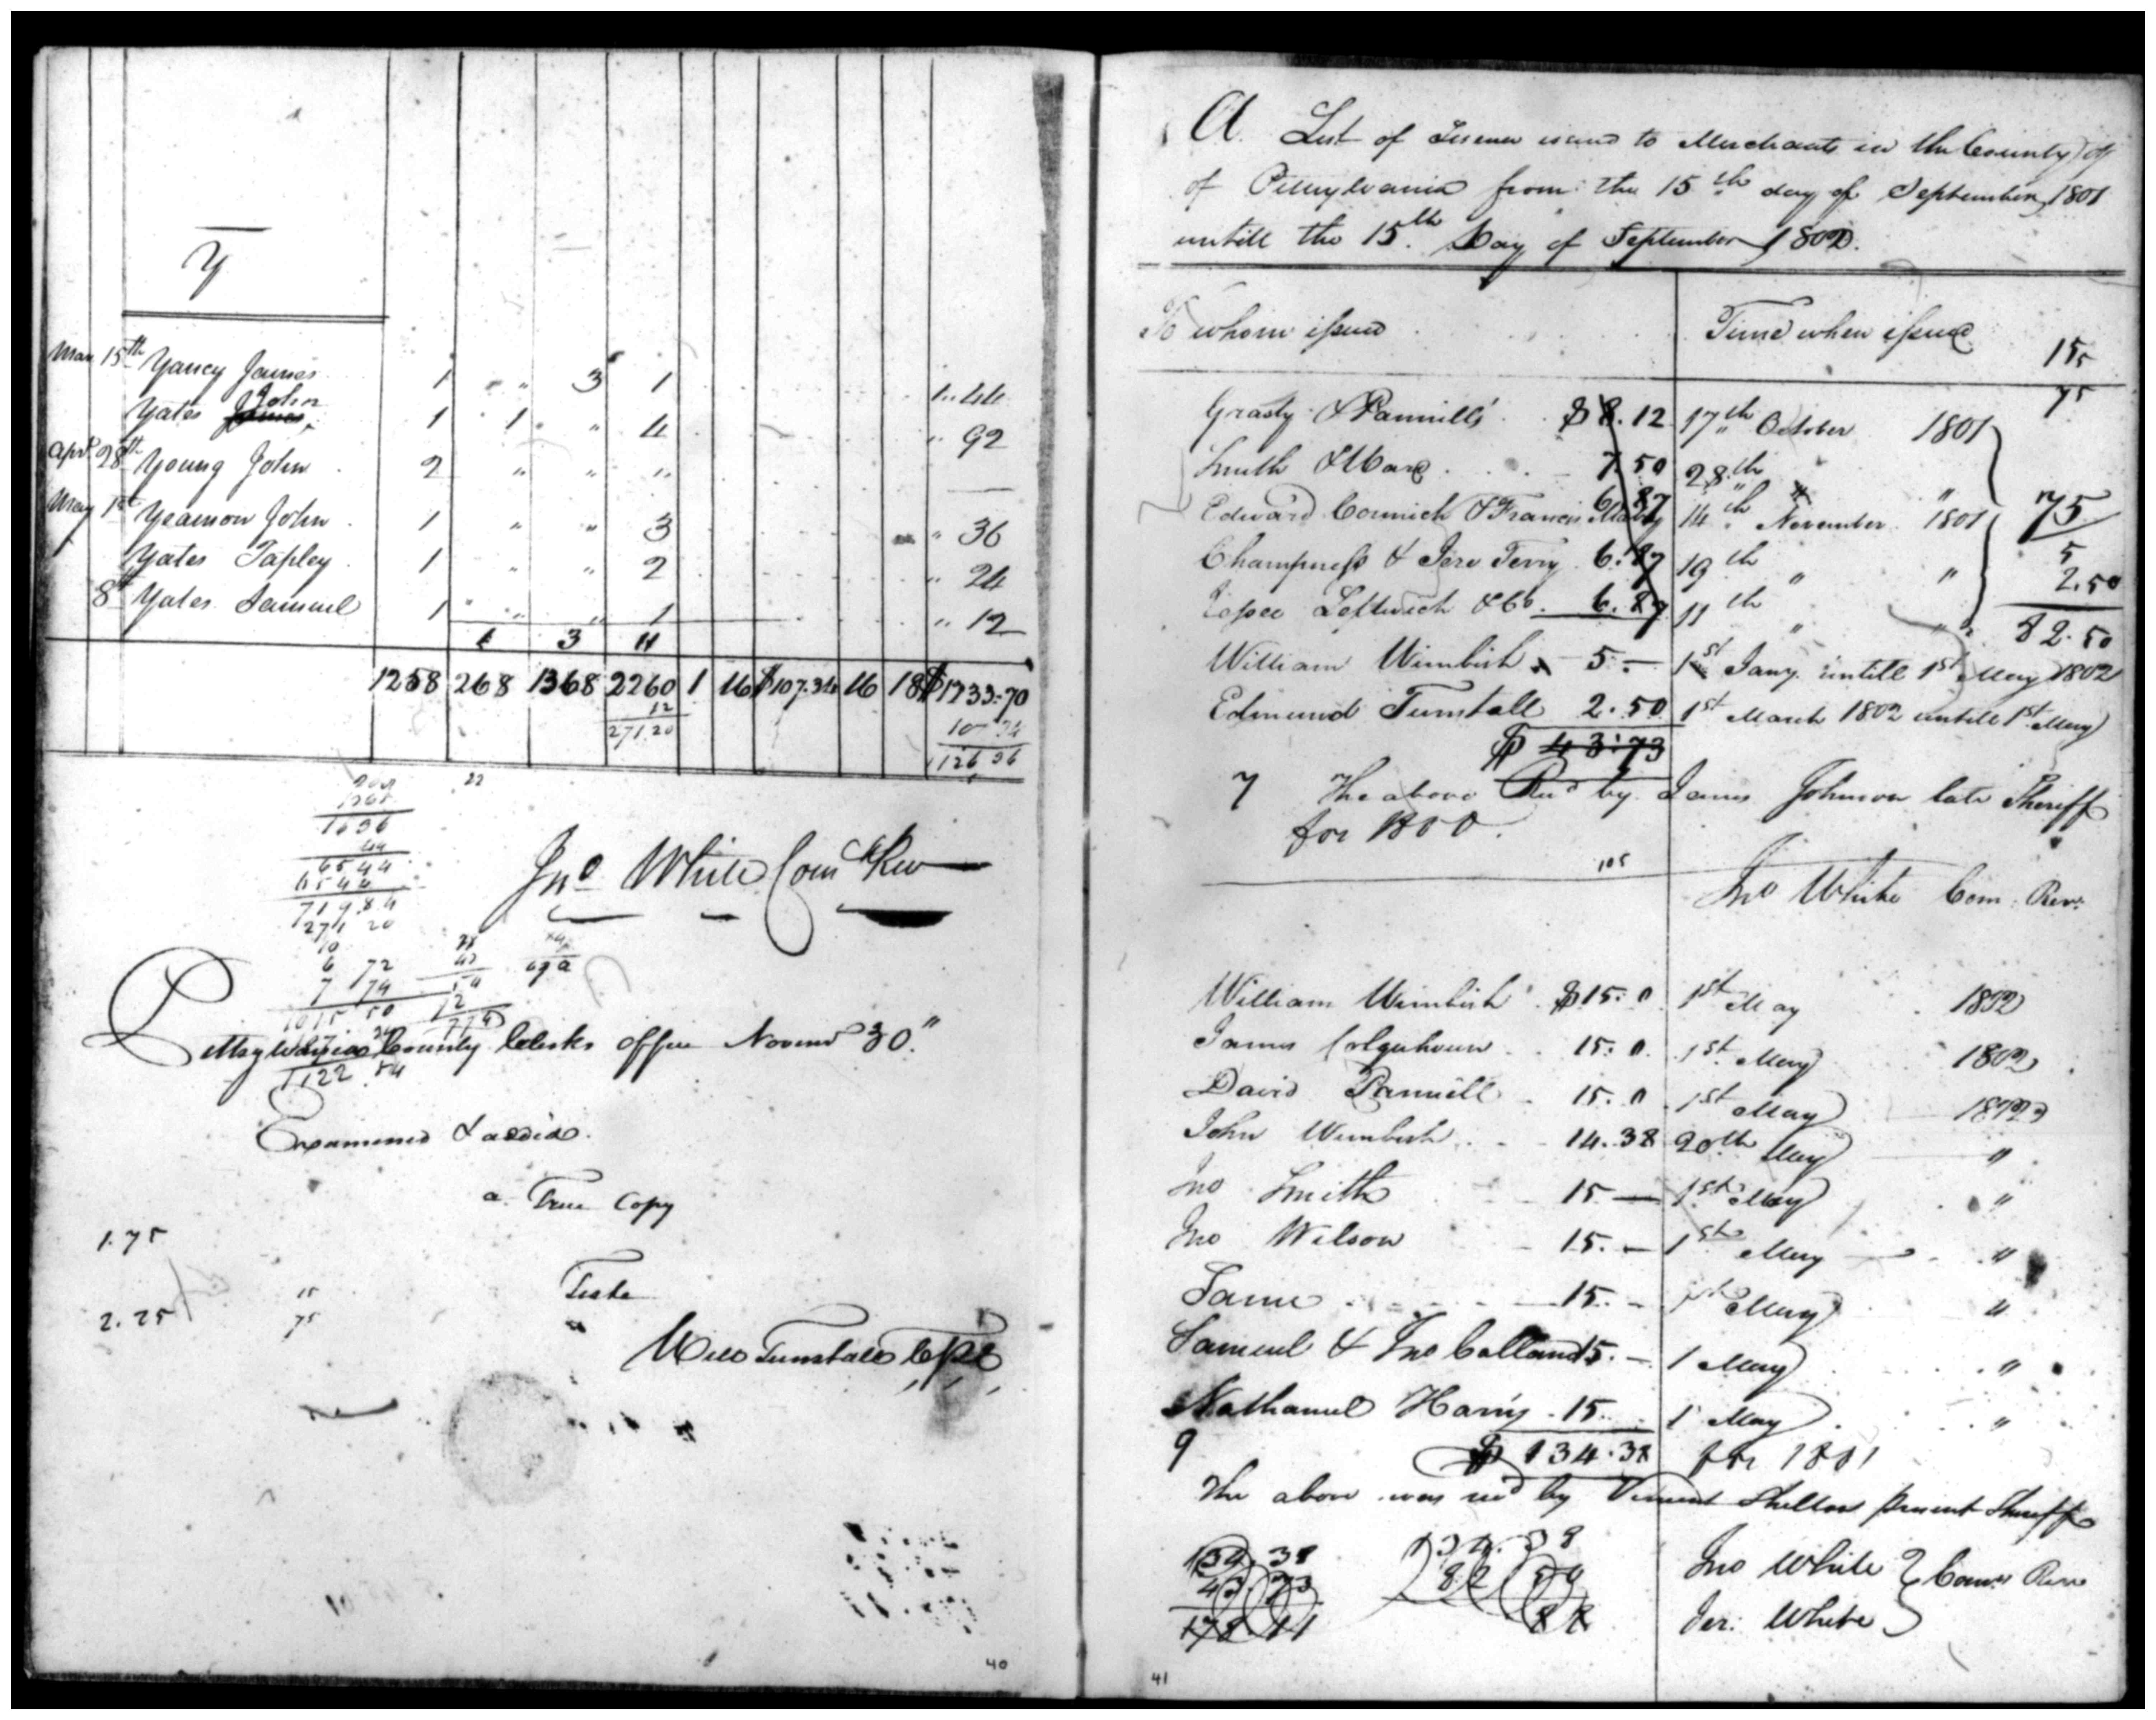 Y
Mar. 15th Yancy James 1 " " 3 1 1..44
Yates James John 1 1 " 4 " 92
Apl. 28th Young John 2 " " "
May 1st Yeamon John 1 " " 3 " 36
Yates Tapley 1 " " 2 " 24
8th Yates Samuel 1 " " 1 " 12
1 3 11
1258 268 1368 2260 1 16 $107.34 16 18 $1233.70
12
271 20
1126 36
22
1368
1636
44
6544
6544
71984
271 20
10
6 72
7 74
1015 50
1122 84
Jno White Comr Rev
Pittsylvania County Clerks office Novemr 30"
Examined & added.
a True Copy
1.75
Teste
2.25
15
75
Will Tunstall C P C
40
A List of Lisences issued to Merchants in the County of
of Pittsylvania from the 15th day of September 1801
untill the 15th Day of September 1802.
To whom issued Time when issued
15
75
Grasty & Pannills $8.12 17th October 1801
Smith & Ware 7.50 28th " "
Edward Cormick & Francis Mabry 6.87 14th November 1801
75
5
2.50
82.50
Champness & Jere Terry 6.87 19th " "
Leftwich & Co. 6.87 11th " "
William Wimbish 5.- 1st Jany. untill 1st May 1802
Edmund Tunstall 2.50 1st March 1802 untill 1st May
$43.73
7 The above Recd by James Johnson late Sheriff
for 1800.
105
Jno White Com. Rev.
William Wimbish $15.0 1st May 1802
James Colquhoun 15.0 1st May 1802
David Pannill 15.0 1st May 1802
John Wimbish 14.38 20th May "
Jno Smith 15 — 1st May "
Jno Wilson 15.— 1st May "
Same 15.— 1st May "
Samuel & Jno Calland 15.— 1 May "
Nathaniel Harris 15. 1 May "
9 $134.38 for 1801
The above was recd by Vincent Shelton present Sheriff
134.38 134.38
43.73 82 50
178.11 88
Jno White } Comrs Reve
Jer: White
41